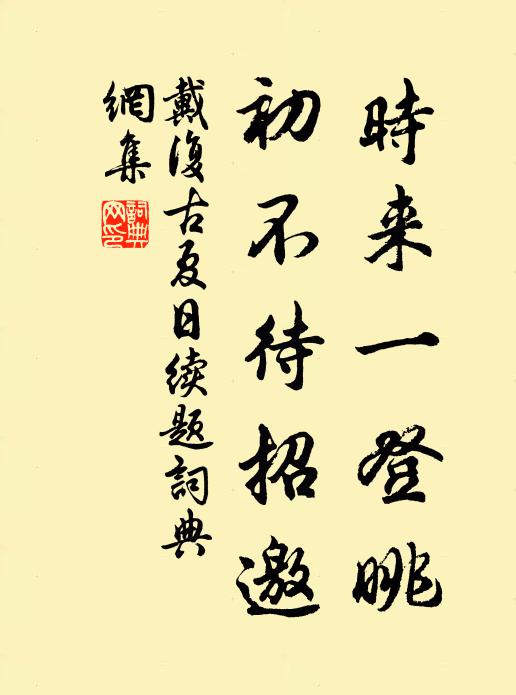 時来一登眺
初不待招邀
戴復古夏日续題詞典
網集
詞典网印